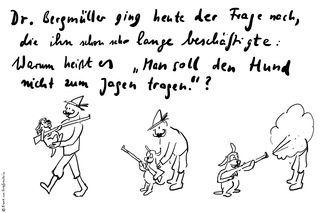 Dr. Bergmüller ging heute der Frage nach,
die ihn schon sehr lange beschäftigte:
Warum heißt es „Man soll den Hund
nicht zum Jagen tragen."?